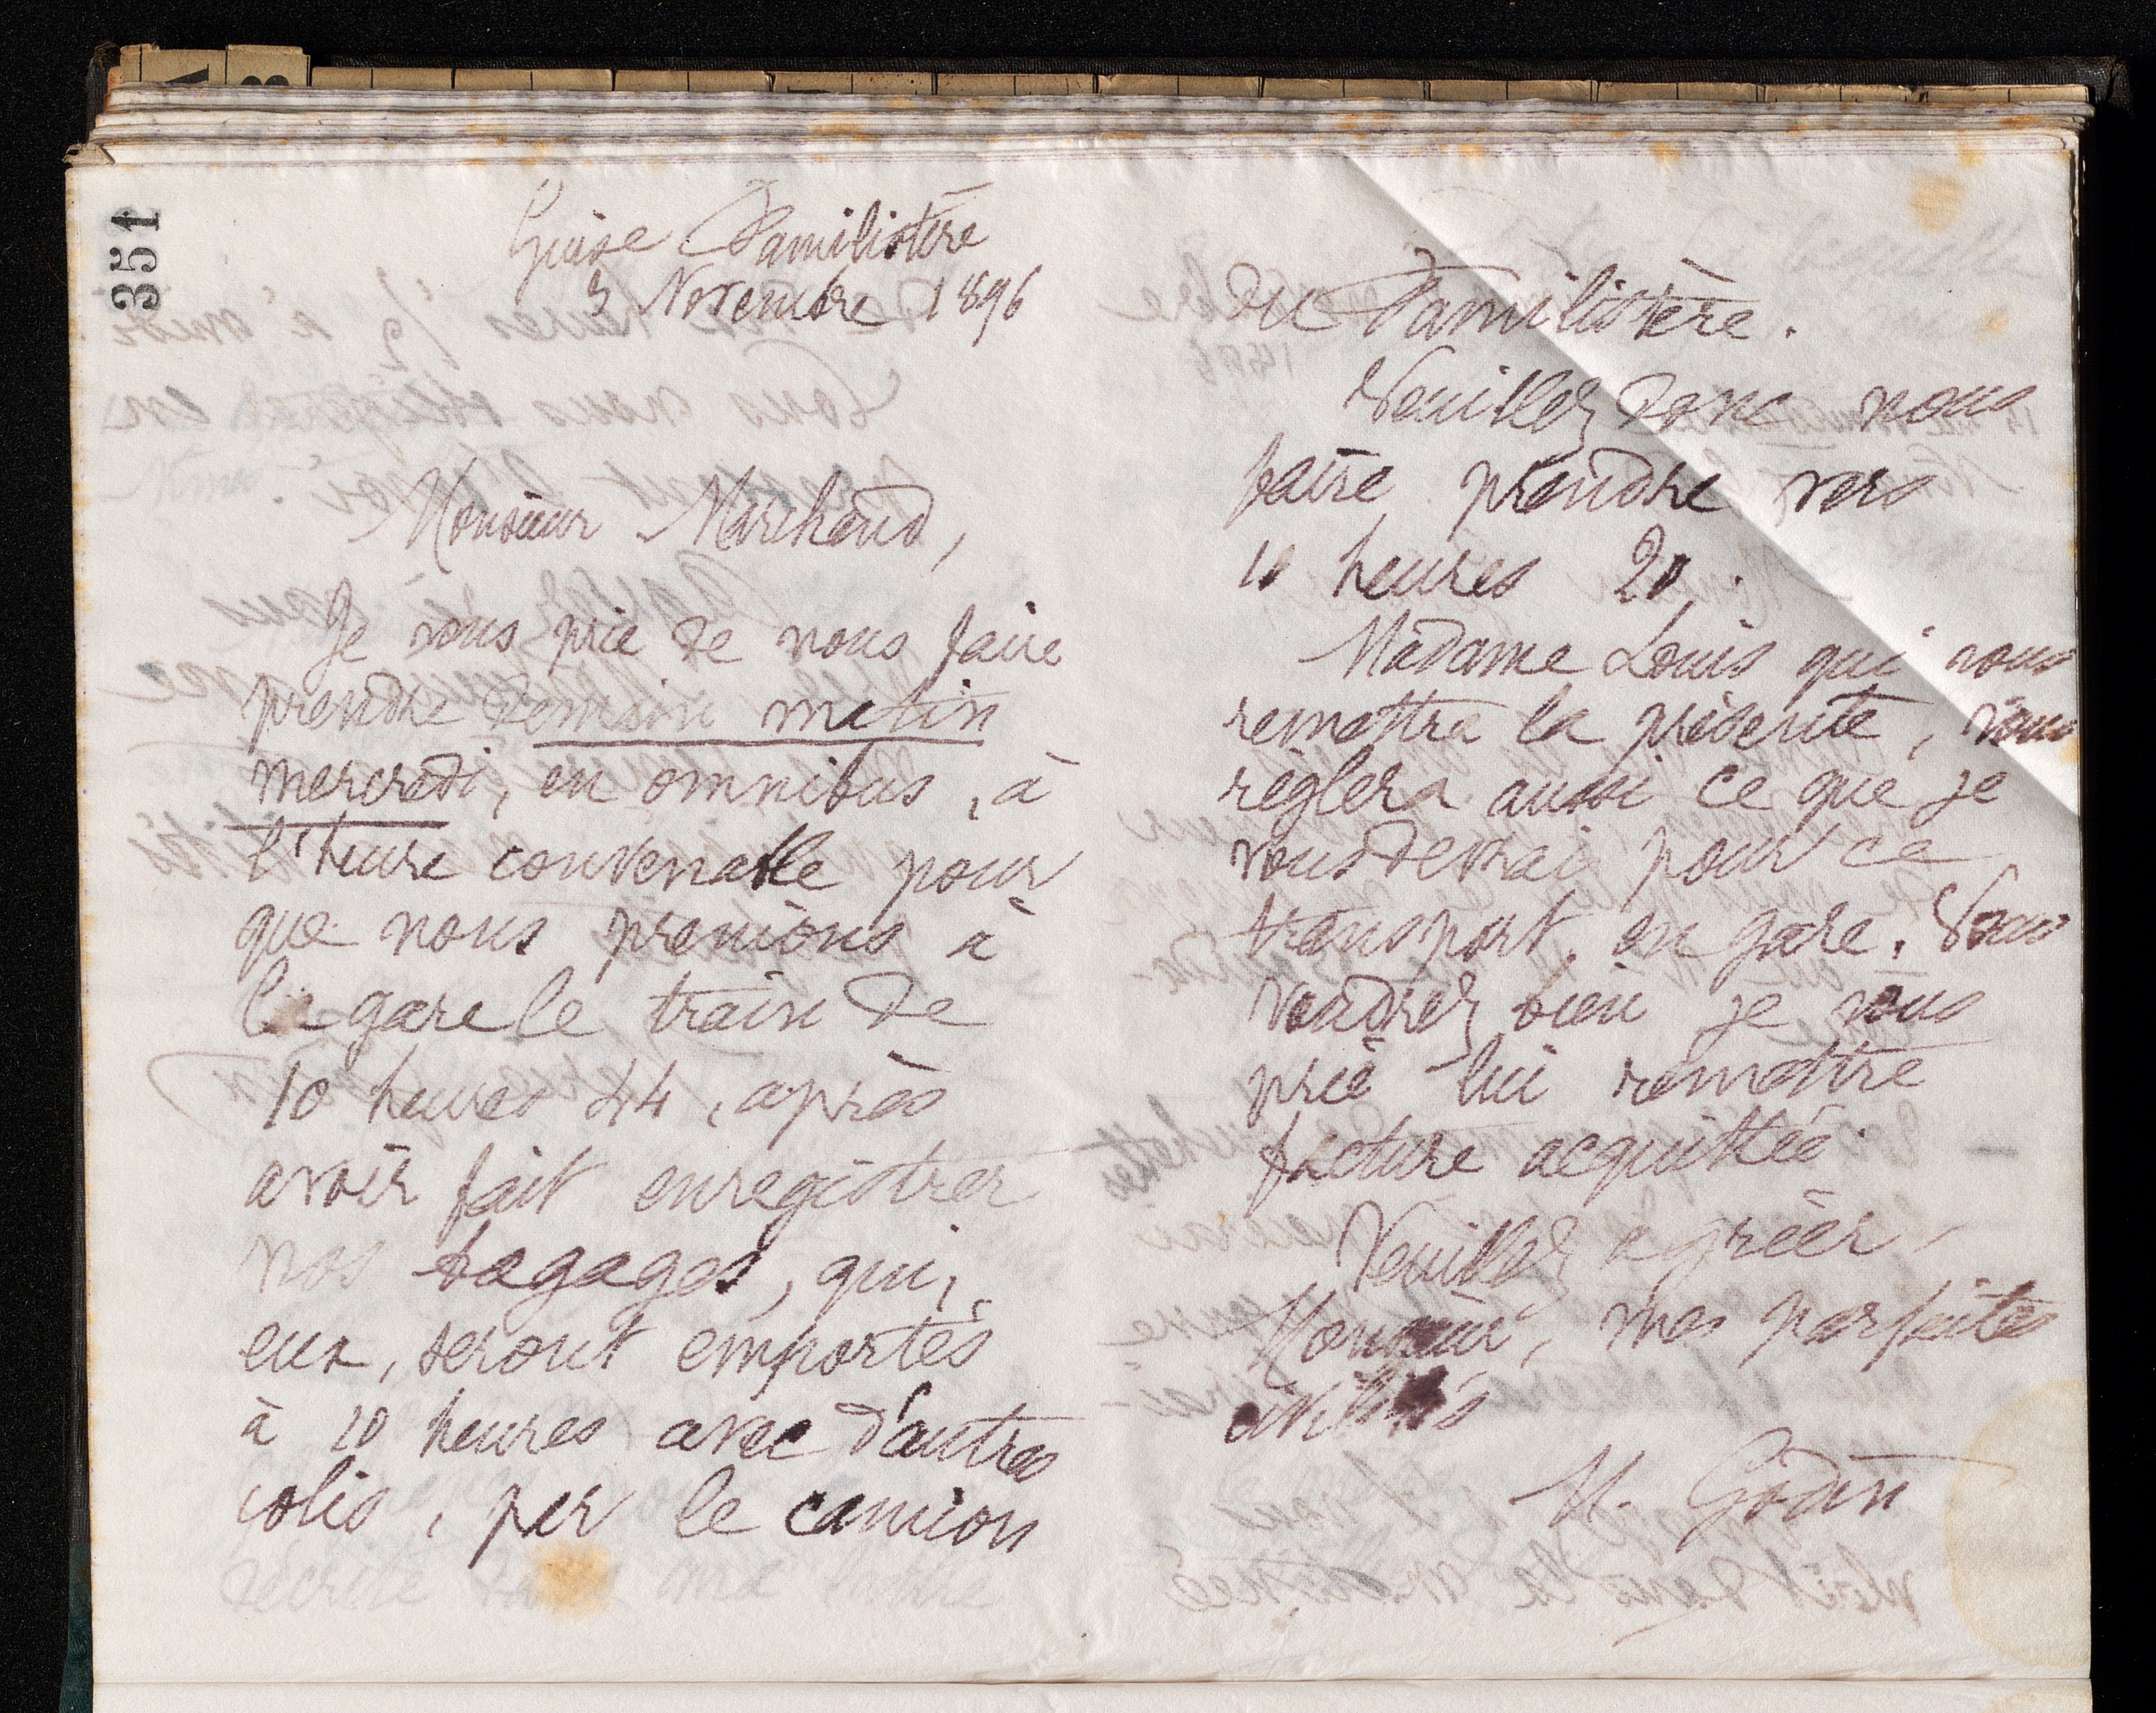 351
Guise Familistère
3 Novembre 1896
Monsieur Marchand,
Je vous prie de nous faire
prendre demain matin
mercredi, en omnibus, à
l'heure convenable pour
que nous prenions à
la gare le train de
10 heures 44, après
avoir fait enregistrer
nos bagages, qui,
eux, seront emportés
à 10 heures avec d'autres
colis, par le camion
du Familistère.
Veuillez donc nous
faire prendre vers
10 heures 20.
Madame Louis qui vous
remettra la présente, vous
règlera aussi ce que je
vous devrai pour ce
transport en gare. Vous
voudrez bien je vous
prie lui remettre
facture acquittée.
Veuillez agréer,
Monsieur, mes parfaites
civilités
M. Godin